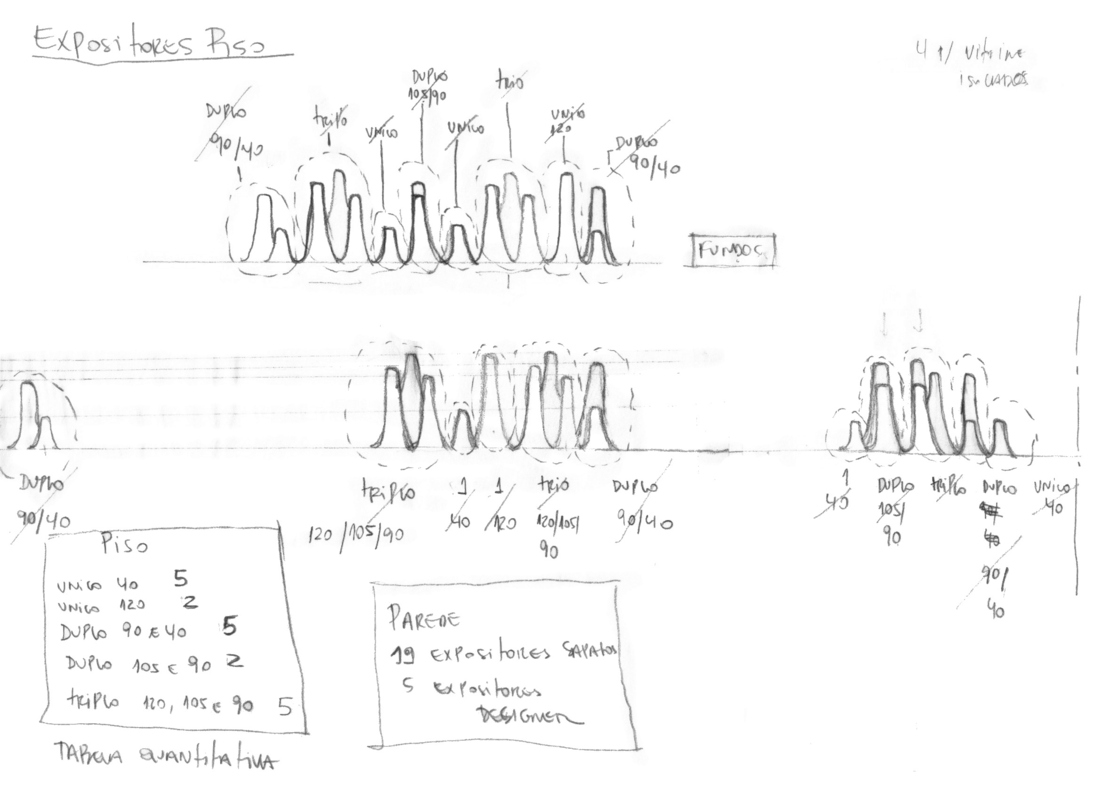 EXPOSITORES PISO
4 p/ VITRINE
ISOLADOS
DUPLO
90/40
TRIPLO
UNICO
DUPLO
105/90
UNICO
TRIO
UNICO
120
DUPLO
90/40
FUNDOS
DUPLO
90/40
TRIPLO
120/105/90
1
40
1
120
TRIO
120/105/
90
DUPLO
90/40
1
40
DUPLO
105/
90
TRIPLO
DUPLO
90/
40
UNICO
40
PISO
UNICO 40 5
UNICO 120 2
DUPLO 90 E 40 5
DUPLO 105 E 90 2
TRIPLO 120, 105 E 90 5
TABELA QUANTITATIVA
PAREDE
19 EXPOSITORES SAPATOS
5 EXPOSITORES
DESIGNER